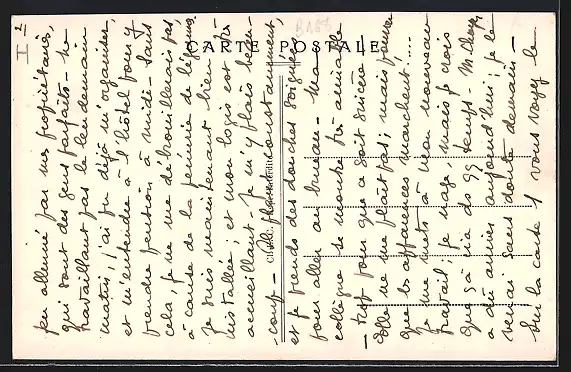 CARTE POSTALE
I 2
peu allumé par nos propriétaires,
qui sont des gens parfaits – ne
travaillant pas le lendemain
matin, j'ai pu déjà m'organiser,
et m'entendre à l'hôtel pour y
prendre pension à midi – Sans
cela, je ne me débrouillerais pas,
à cause de la pénurie de légumes
Je suis maintenant bien
installée, et mon logis est très
accueillant – Je m'y plais beau-
coup – Il pleut constamment,
et je prends des douches soignées
pour aller au bureau – Ma
collègue se montre très aimable
– trop pour que ce soit sincère
Elle ne me plaît pas; mais pourvu
que les apparences marchent, ....
Je me mets à mon nouveau
travail; je nage, mais je crois
que ça ira dans qq temps – M.
a dû arriver aujourd'hui; je le
verrai sans doute demain –
Sur la carte 1 vous voyez le